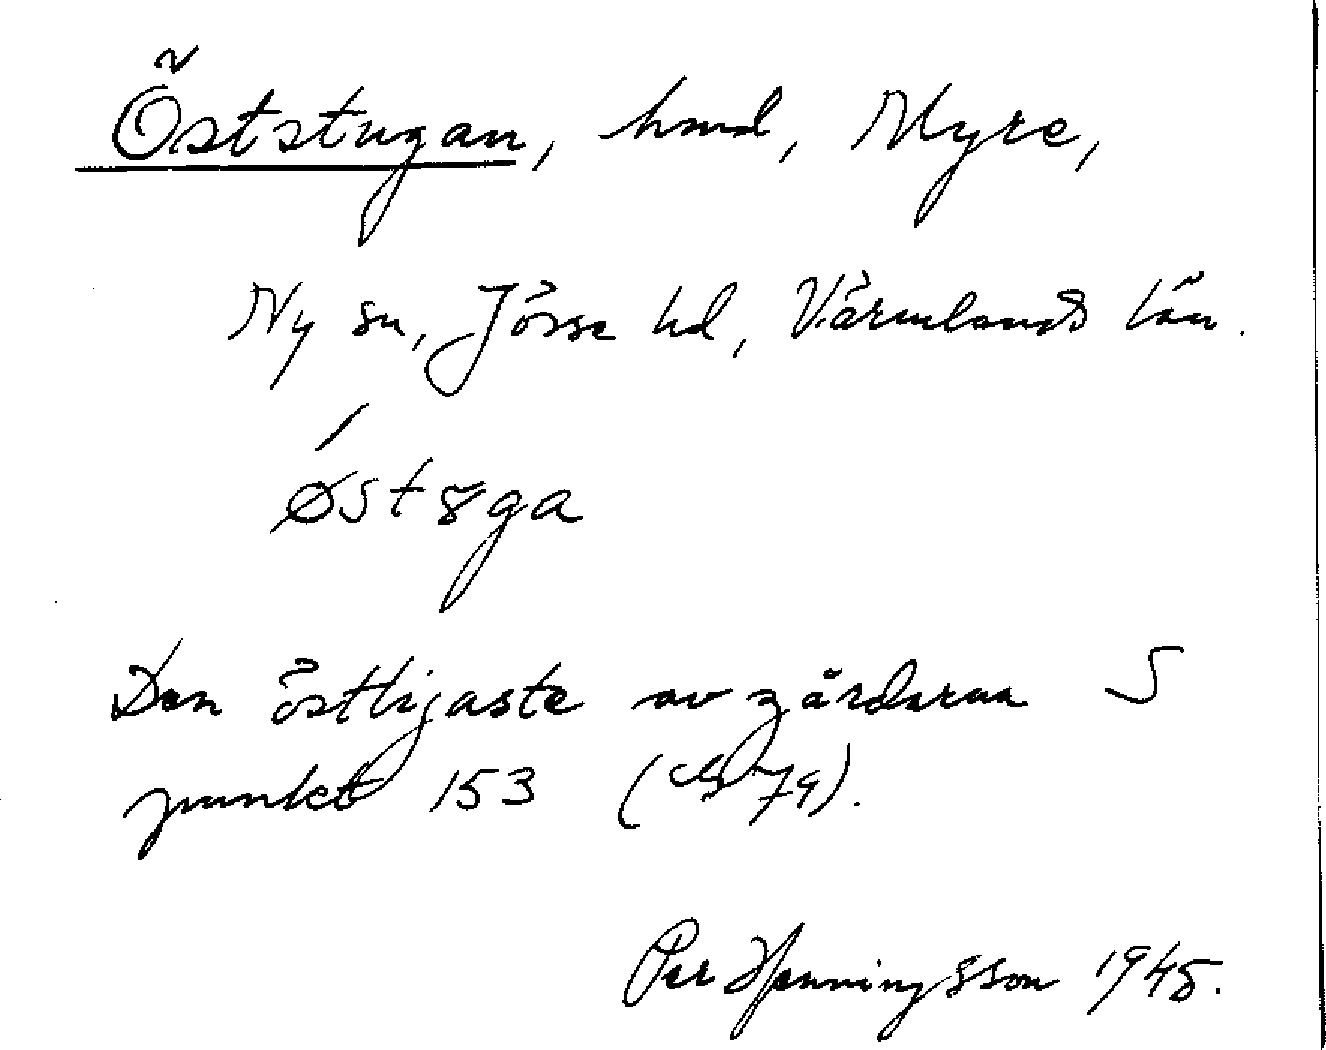 Öststugan, hmd, Myre,
Ny sn, Jösse hd, Värmlands län.
östȣga
Den östligaste av gårdarna S
punkt 153 (G 79).
Per Henningsson 1945.